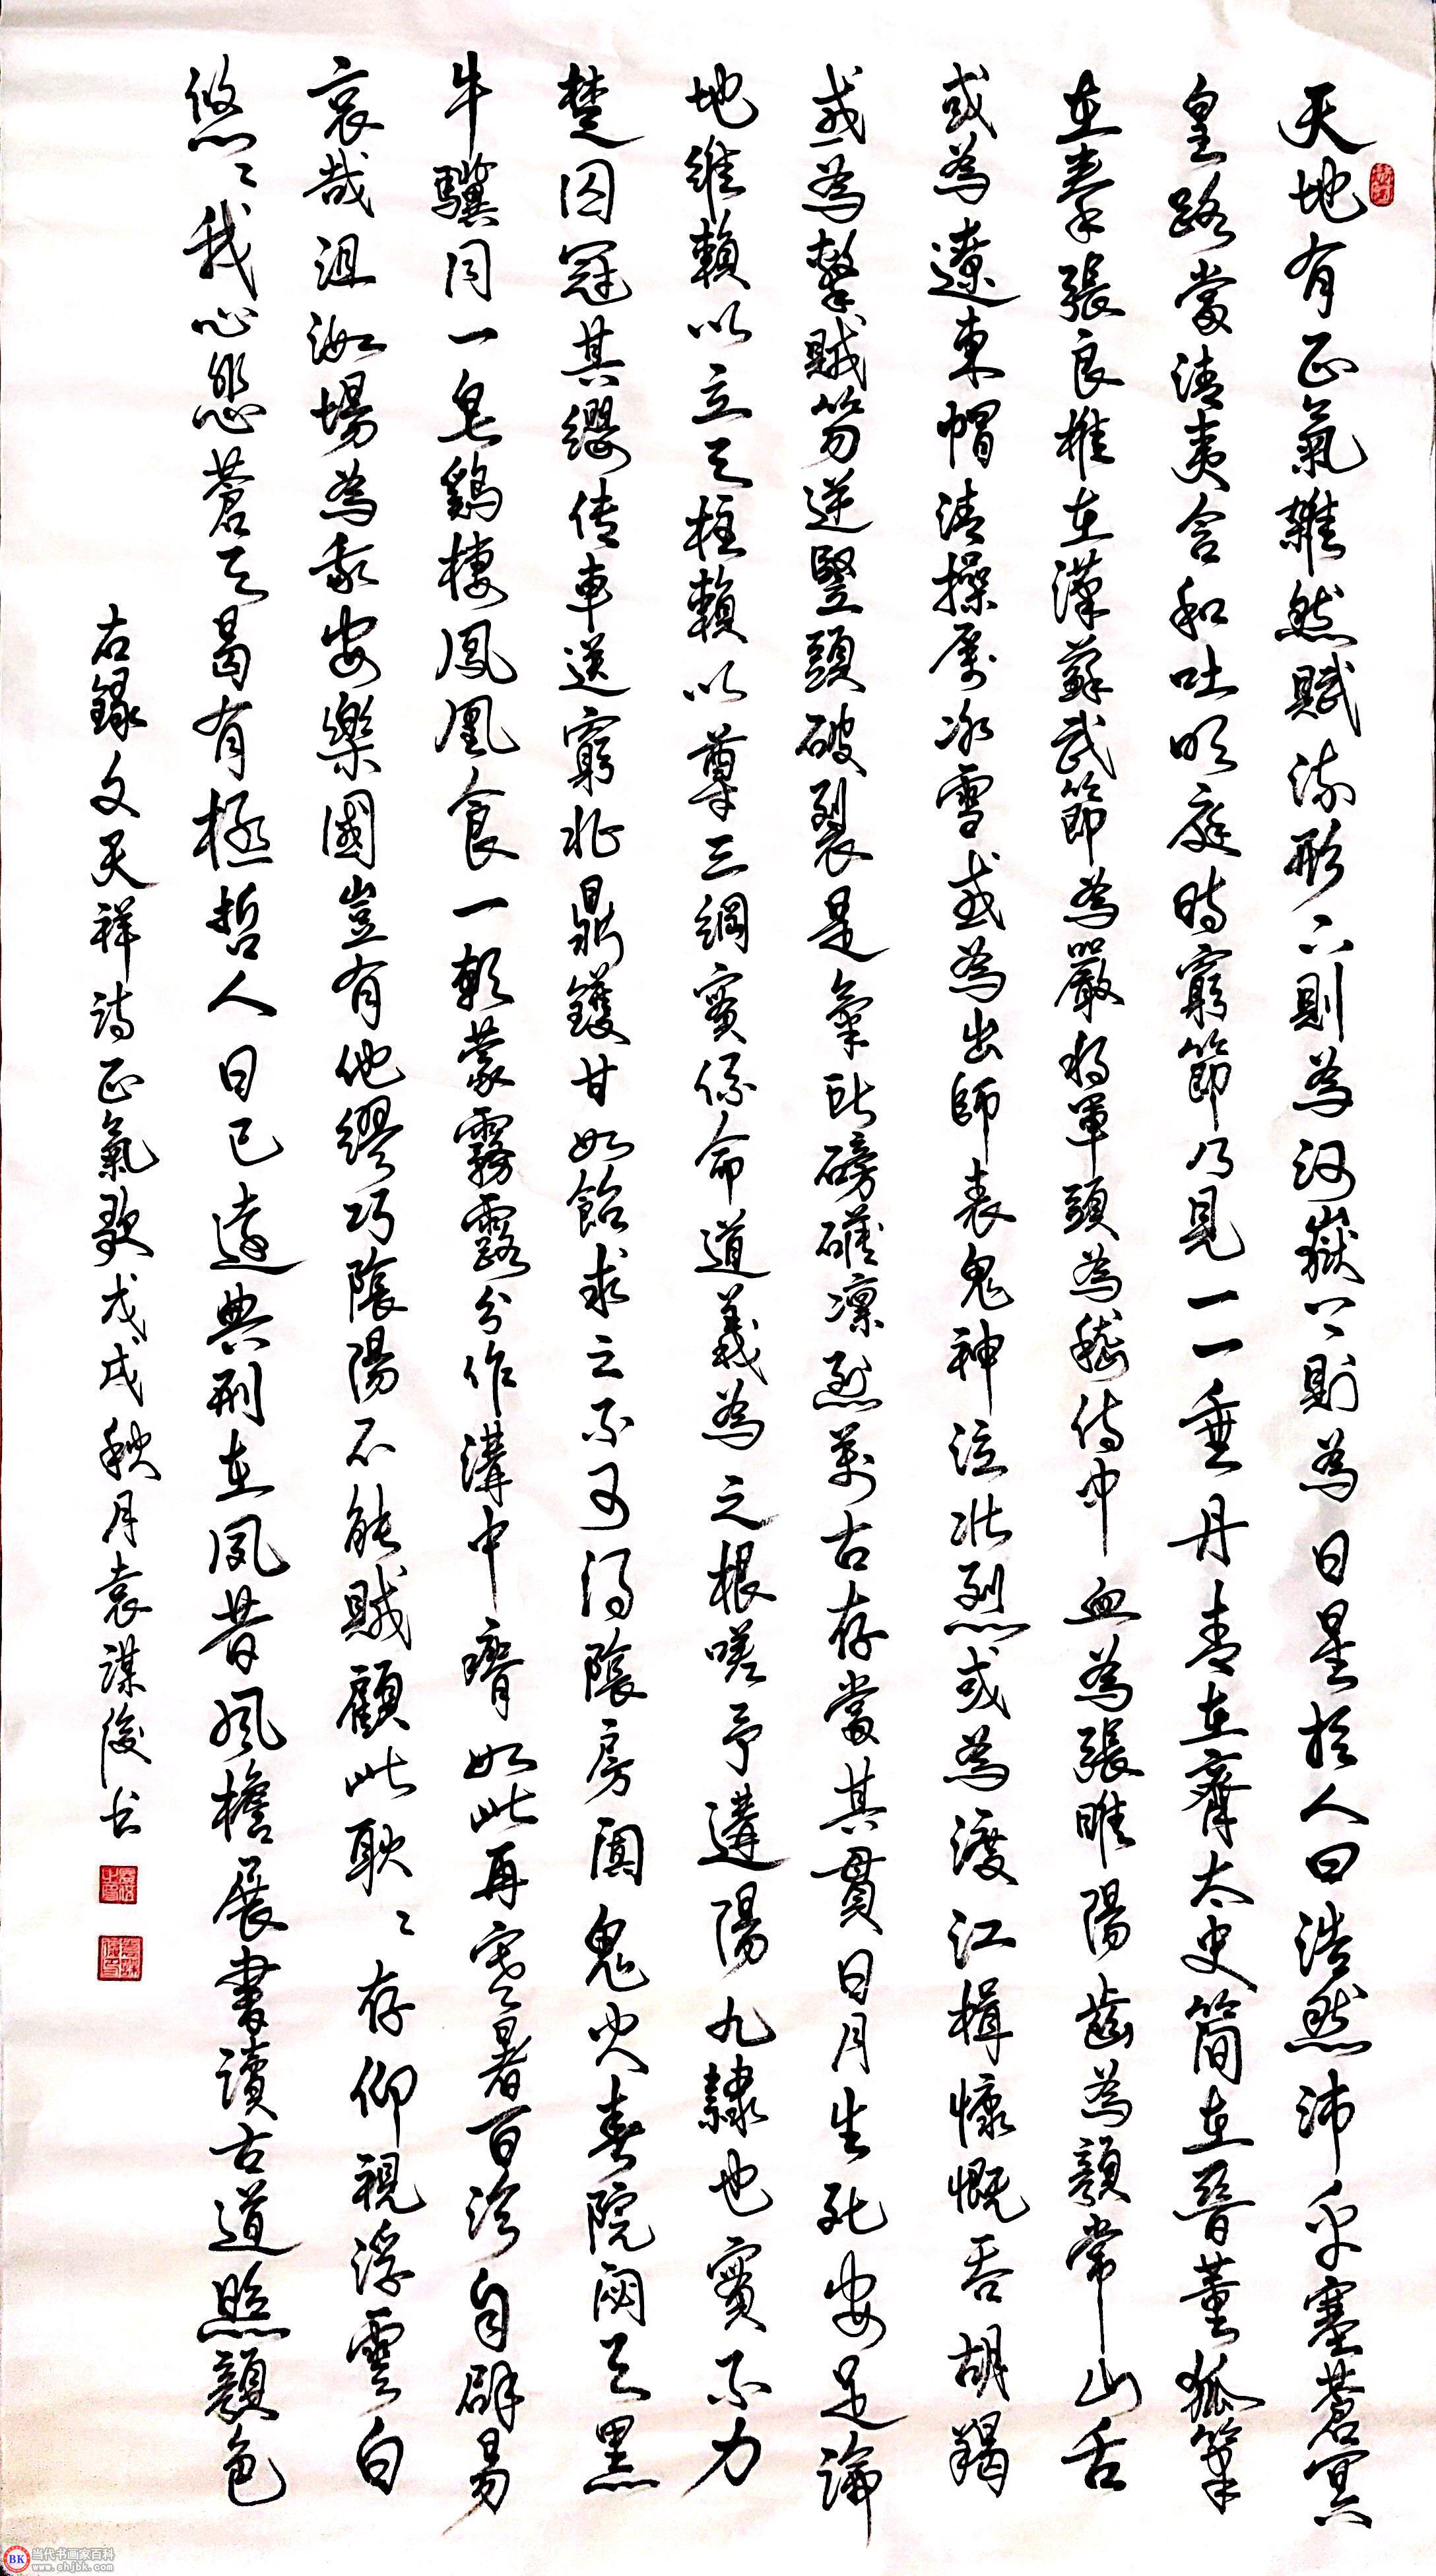 天地有正氣雜然賦流形下則為河嶽上則為日星於人曰浩然沛乎塞蒼冥
皇路當清夷含和吐明庭時窮節乃見一一垂丹青在齊太史簡在晉董狐筆
在秦張良椎在漢蘇武節為嚴將軍頭為嵇侍中血為張睢陽齒為顏常山舌
或為遼東帽清操厲冰雪或為出師表鬼神泣壯烈或為渡江楫慷慨吞胡羯
或為擊賊笏逆豎頭破裂是氣所磅礴凜烈萬古存當其貫日月生死安足論
地維賴以立天柱賴以尊三綱實係命道義為之根嗟予遘陽九隸也實不力
楚囚冠其纓傳車送窮北鼎鑊甘如飴求之不可得陰房闃鬼火春院閟天黑
牛驥同一皂鷄棲鳳凰食一朝蒙霧露分作溝中瘠如此再寒暑百沴自辟易
哀哉沮洳場為我安樂國豈有他繆巧陰陽不能賊顧此耿耿存仰視浮雲白
悠悠我心悲蒼天曷有極哲人日已遠典刑在夙昔風檐展書讀古道照顏色
右錄文天祥詩正氣歌戊戌秋月袁謀俊书
BK 当代书画家百科
www.shjbk.com